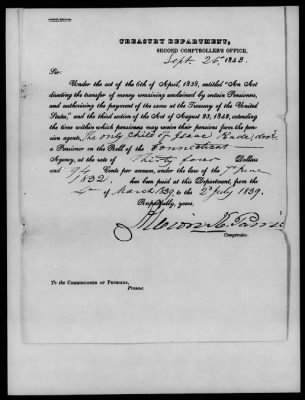 TREASURY DEPARTMENT,
SECOND COMPTROLLER'S OFFICE,
Sept. 26, 1843.
Sir:
Under the act of the 6th of April, 1838, entitled "An Act
directing the transfer of money remaining unclaimed by certain Pensioners,
and authorizing the payment of the same at the Treasury of the United
States," and the third section of the Act of August 23, 1842, extending
the time within which pensioners may receive their pensions from the pen-
sion agents, the only Child of Isaac
a Pensioner on the Roll of the Connecticut
Agency, at the rate of Thirty four Dollars
and 94 Cents per annum, under the law of the 7th June
1832, has been paid at this Department, from the
4th of March 1839, to the 2d July 1839.
Respectfully, yours,
Albion K. Parris
Comptroller.
To the COMMISSIONER OF PENSIONS,
Present.